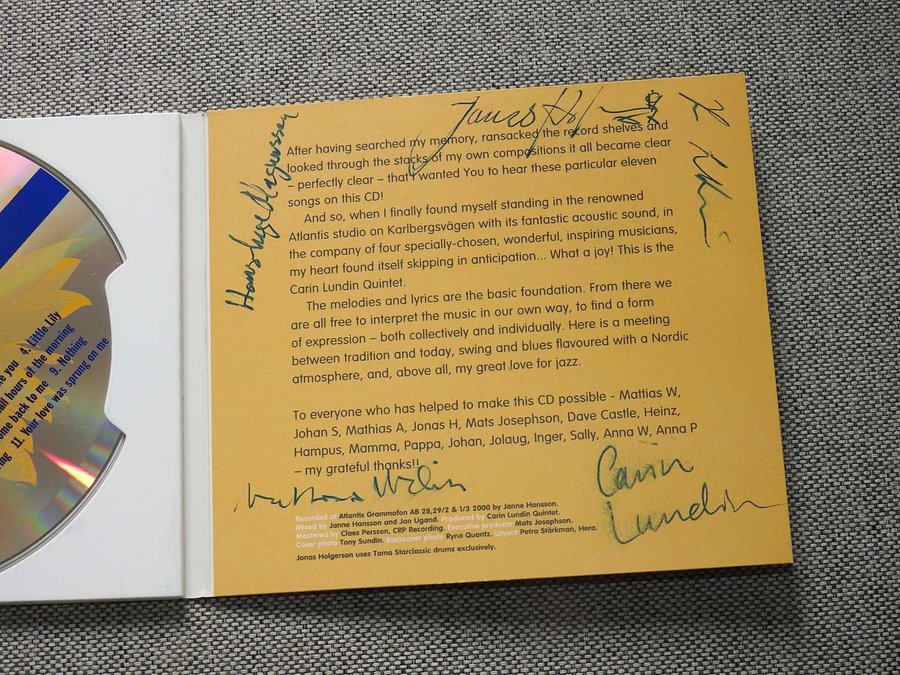 ke you 4. Little Lily
all hours of the morning
ome back to me 9. Nothing
ing 11. Your love was sprung on me
After having searched my memory, ransacked the record shelves and
looked through the stacks of my own compositions it all became clear
– perfectly clear – that I wanted You to hear these particular eleven
songs on this CD!
And so, when I finally found myself standing in the renowned
Atlantis studio on Karlbergsvägen with its fantastic acoustic sound, in
the company of four specially-chosen, wonderful, inspiring musicians,
my heart found itself skipping in anticipation... What a joy! This is the
Carin Lundin Quintet.
The melodies and lyrics are the basic foundation. From there we
are all free to interpret the music in our own way, to find a form
of expression – both collectively and individually. Here is a meeting
between tradition and today, swing and blues flavoured with a Nordic
atmosphere, and, above all, my great love for jazz.
To everyone who has helped to make this CD possible - Mattias W,
Johan S, Mathias A, Jonas H, Mats Josephson, Dave Castle, Heinz,
Hampus, Mamma, Pappa, Johan, Jolaug, Inger, Sally, Anna W, Anna P
– my grateful thanks!!
Carin
Lundin
Recorded at Atlantis Grammofon AB 28,29/2 & 1/3 2000 by Janne Hansson.
Mixed by Janne Hansson and Jan Ugand. Produced by Carin Lundin Quintet.
Mastered by Claes Persson, CRP Recording. Executive producer Mats Josephson.
Cover photo Tony Sundin. Backcover photo Ryno Quantz. Layout Petra Störkman, Hera.
Jonas Holgerson uses Tama Starclassic drums exclusively.